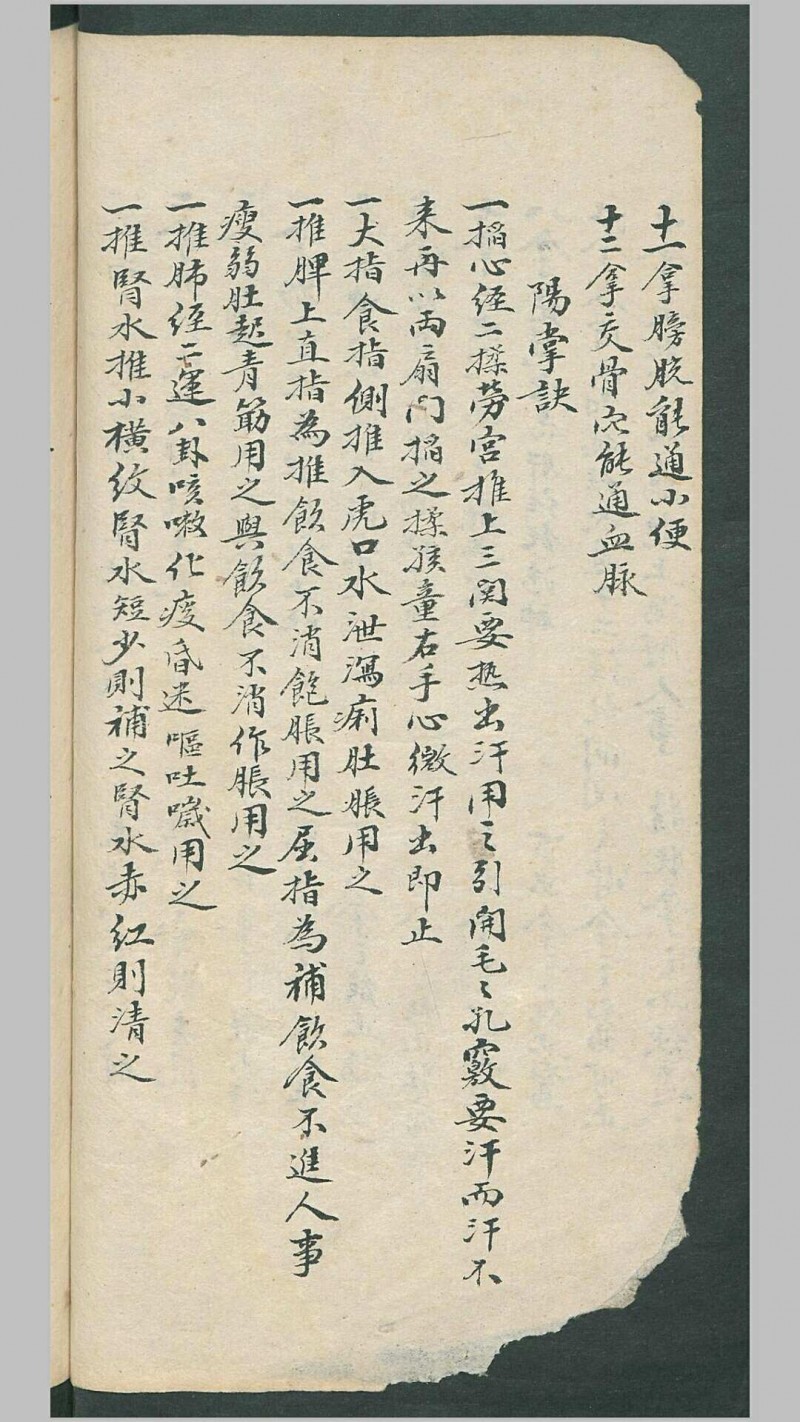 十一拿膀胱能通小便
十二拿交骨穴能通血脉
陽掌訣
一掐心經二揉勞宮推上三関要热出汗用之引開毛〻孔竅要汗而汗不
来再以両扇门掐之揉孩童右手心微汗出即止
一大指食指側推入虎口水泄瀉痢肚脹用之
一推脾上直指為推飲食不消飽脹用之屈指為補飲食不進人事
瘦弱肚起青筋用之與飲食不消作脹用之
一推肺經二運八卦咳嗽化痰昏迷嘔吐噦用之
一推腎水推小橫紋腎水短少則補之腎水赤红則清之